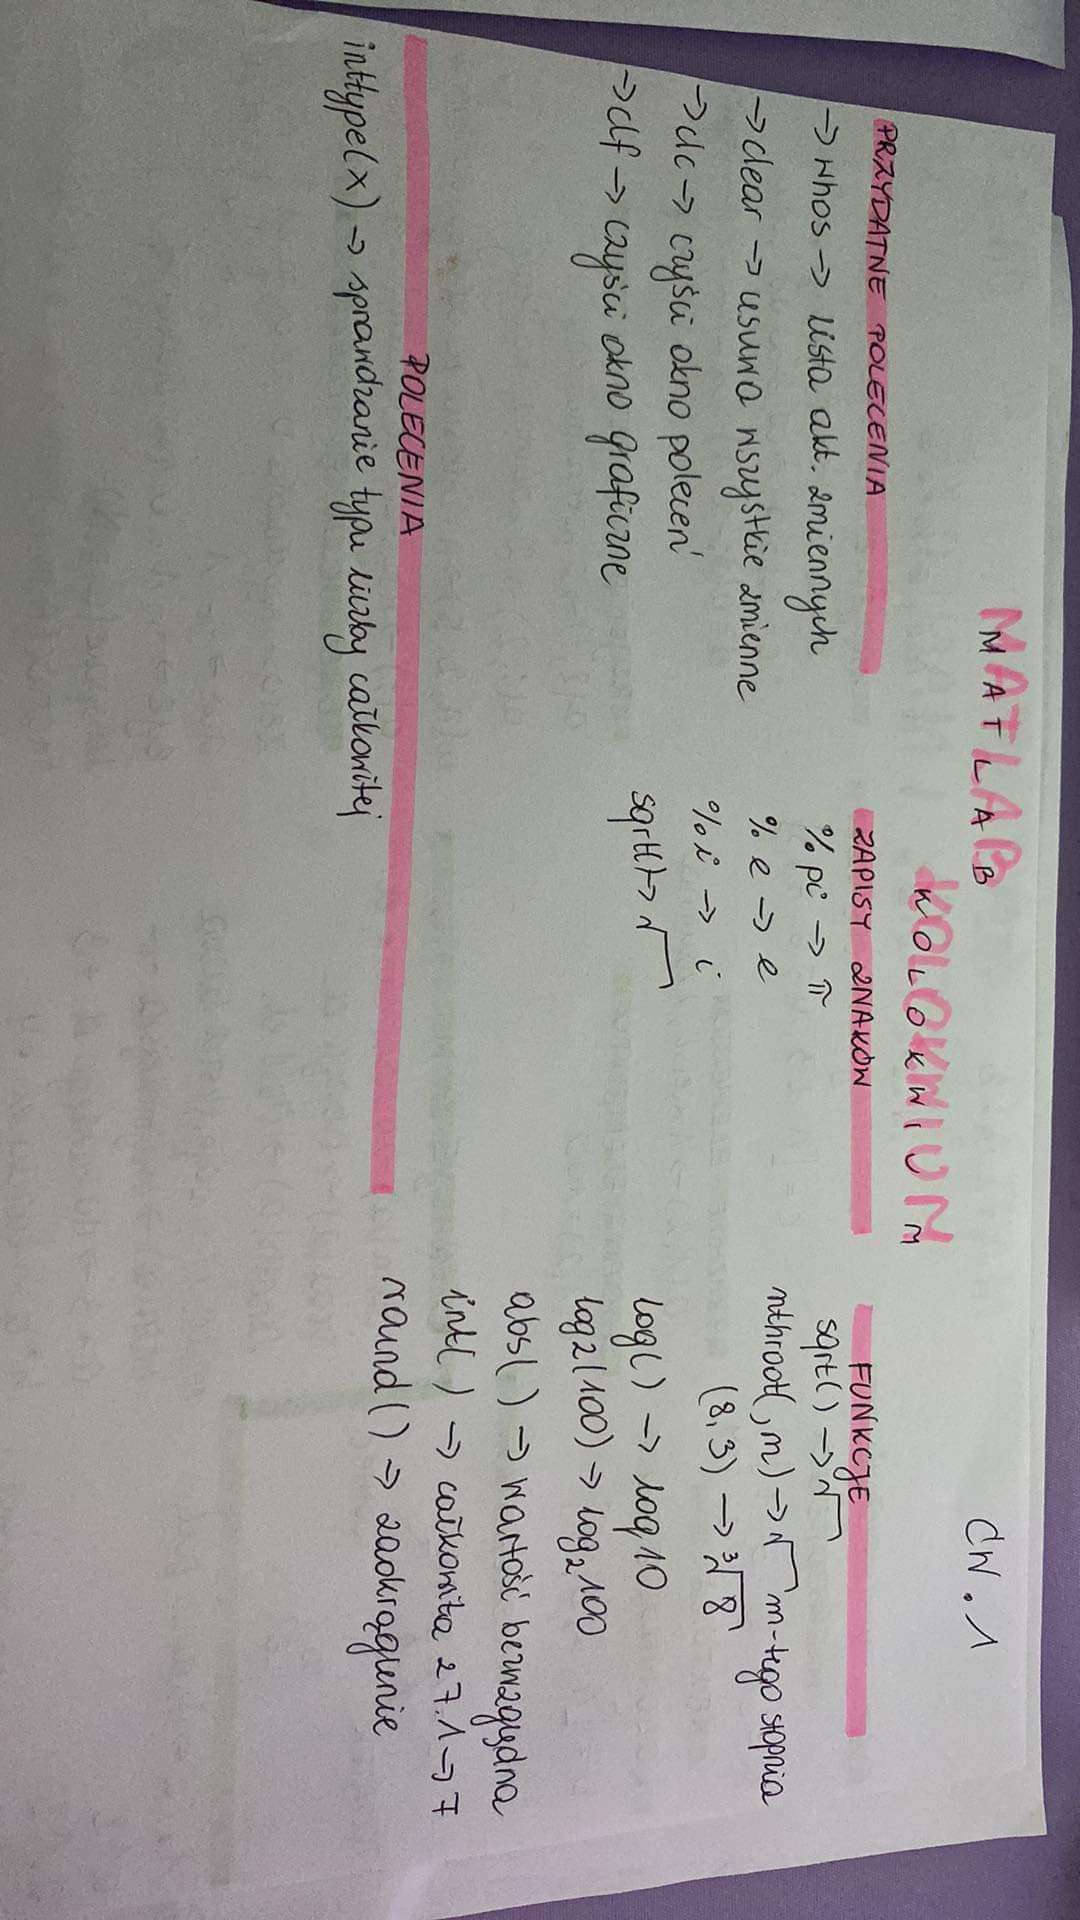 MATLAB
KOLOKWIUM
ĆW. 1
PRZYDATNE POLECENIA
→ whos → lista akt. zmiennych
→ clear → usuwa wszystkie zmienne
→ clc → czyści okno poleceń
→ clf → czyści okno graficzne
ZAPISY ZNAKÓW
%pi → π
%e → e
%i → i
sqrt() → √
FUNKCJE
sqrt() → √
nthroot( , m) → √ m-tego stopnia
(8,3) → ³√8
log() → log10
log2(100) → log₂100
abs( ) → wartość bezwzględna
int( ) → całkowita z 7.1 → 7
round() → zaokrąglenie
POLECENIA
inttype(x) → sprawdzanie typu liczby całkowitej